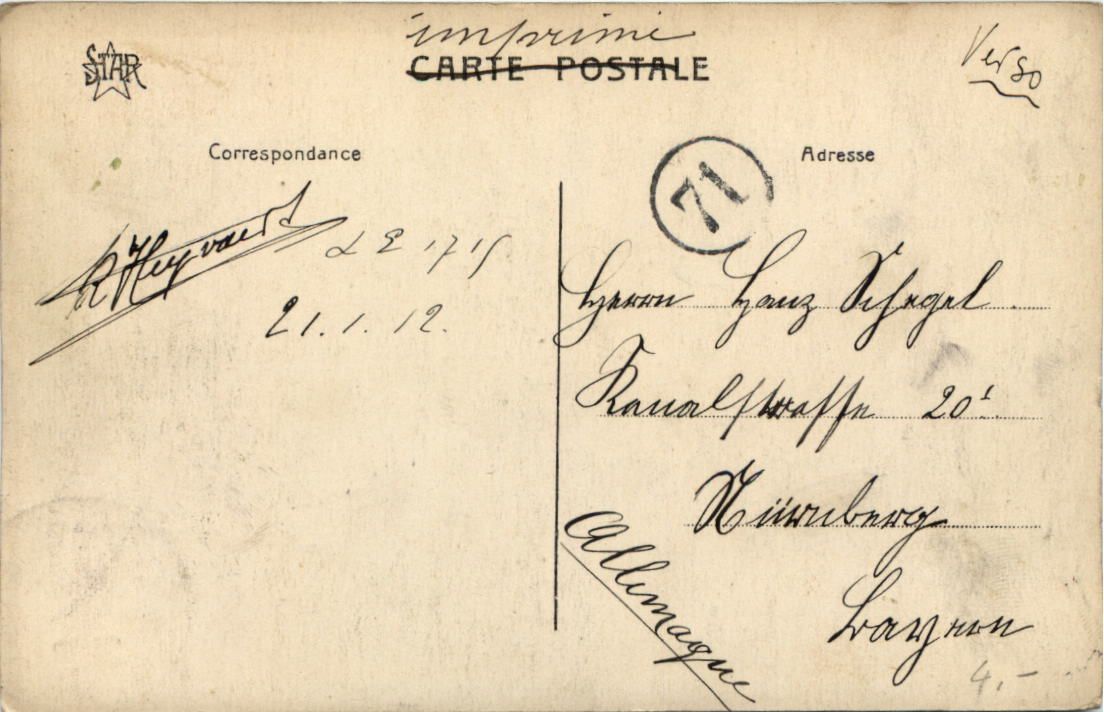 imprimé
CARTE POSTALE
STAR
Verso
Correspondance
Adresse
71
R Heyvaert
LE 1715
21.1.12.
Herrn Hanz Schegel
Kanalstrasse 20
Nürnberg
Bayern
Allemagne
4.-